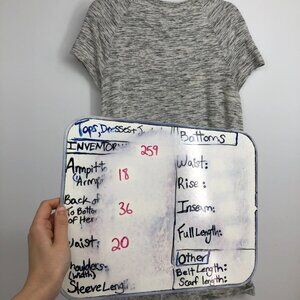 Tops, Dresses+
INVENTORY 259
Armpit to
Armp 18
Back of
To Bottom
of Hem 36
Waist: 20
Shoulders
(width)
Sleeve Leng
Bottoms
Waist:
Rise:
Inseam:
Full Length:
Other
Belt Length:
Scarf Length: